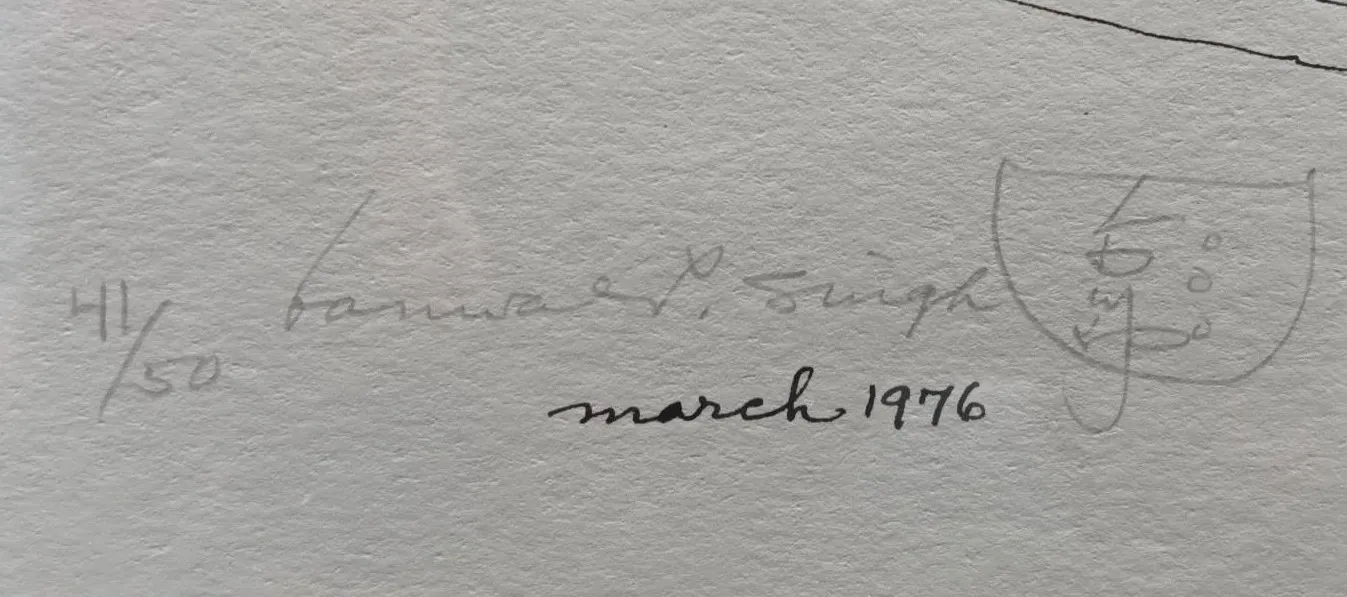 41/50
Kanwal P. Singh
march 1976